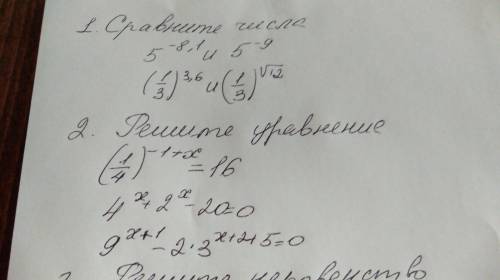 1. Сравните числа
5^{-8,1} и 5^{-9}
(1/3)^{3,6} и (1/3)^{√12}
2. Решите уравнение
(1/4)^{-1+x} = 16
4^x + 2^x - 20 = 0
9^{x+1} - 2 · 3^{x+2} + 5 = 0
Решите неравенство